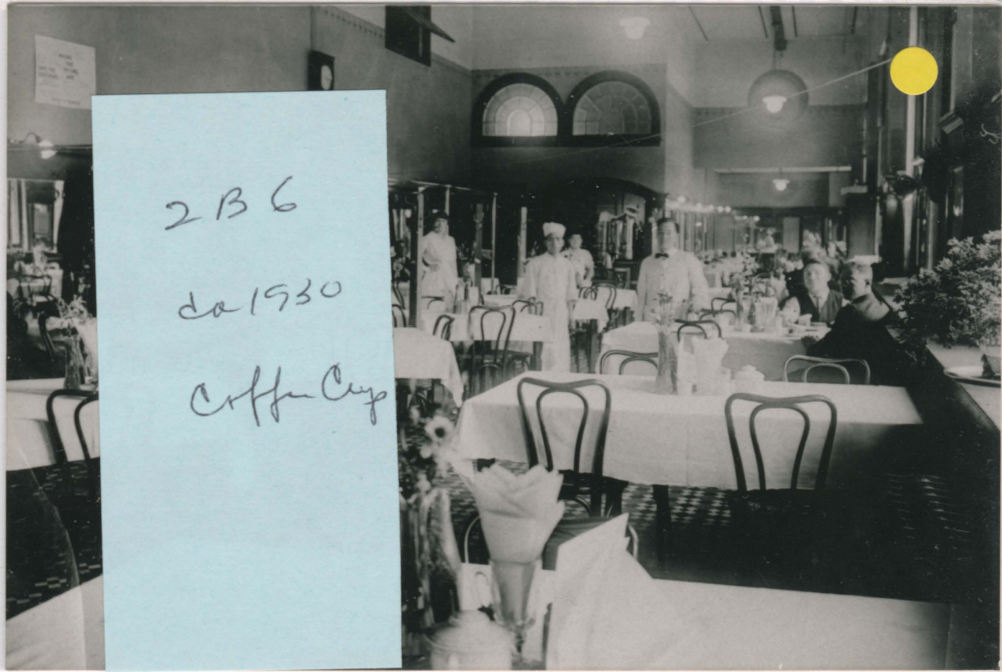 2B6
ca 1930
Coffee Cup